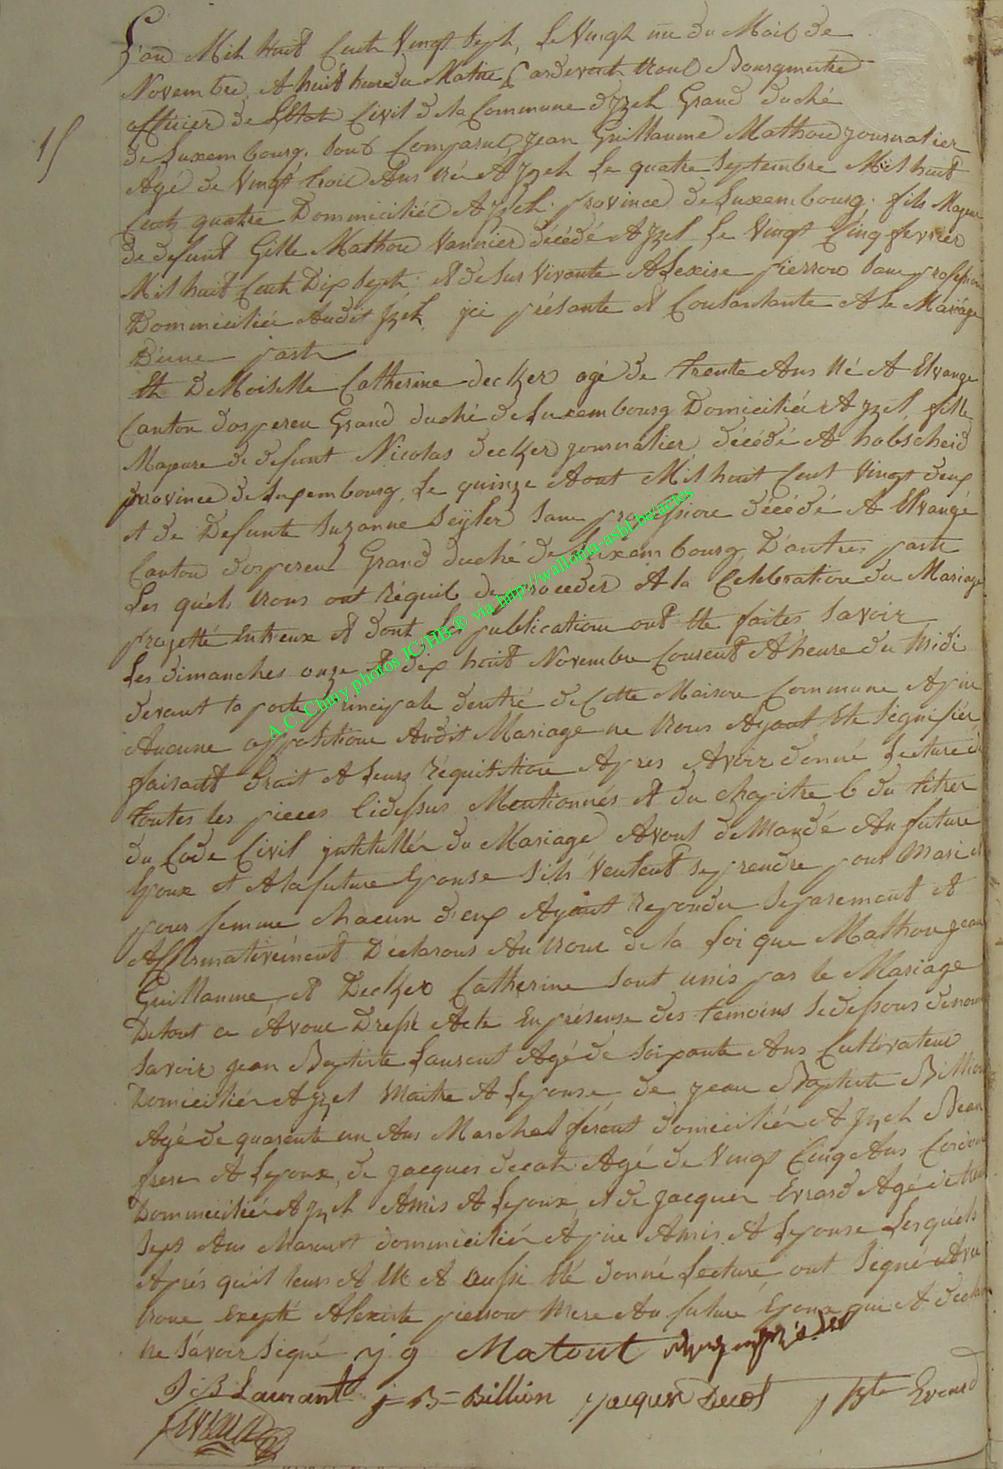 L'an Mil huit Cent Vingt Sept, Le Vingt un du Mois de
Novembre, A huit heure du Matin, Pardevant nous Bourgmestre
officier de L'Etat Civil de la Commune d'Izel Grand duché
15
de Luxembourg. Sont Comparut Jean Guillaume Mathou journalier
Agé de Vingt trois Ans né A Izel Le quatre Septembre Mil huit
Cent quatre Dommicilié A Izel province de Luxembourg. fils Majeur
de defunt Gille Mathou Vannier décédé A Izel Le Vingt Cinq fevrier
Mil huit Cent Dix Sept et de Sur Vivante Alexise pierrou Sans profession
Dommiciliée Audit Izel jci présante et Consantante A le Mariage
D'une part
Et DeMoiselle Catherine decker agé de trente Ans né A Elvange
Canton dosperen Grand duché de Luxembourg Domiciliée A Izel, fille
Majeure de defunt Nicolas decker journalier décédé A habscheid
province de Luxembourg, Le quinze Aout Mil huit Cent Vingt deux
et de Defunte Suzanne Seyler Sans professione décédé A Elvange
Canton dosperen Grand duché de Luxembourg D'autres part
Les quels nous ont réquis de proceder A la Celebration du Mariage
projetté Entreux et dont les publications ont Eté faites Savoir
Les dimanches onze et dix huit Novembre Courent A heure du Midi
devant la porte principale dentré de Cette Maison Commune
Aucune oppositione Audit Mariage ne nous Ayant Eté Signifiér
faisant Droit A Leurs réquisition Apres Avoir donné Lecture de
toutes les pieces Cidessus Mentionnés et du chapitre 6 du titrer
du Code Civil jntitullér du Mariage Avons deMandé Au future
Epoux et A la future Epouse S'ils Veulent Se prendre pour Mari et
pour femme chacun d'eux Ayant repondu Separement et
Affirmativeiment Déclarons Au nom de la Loi que Mathou jean
Guillaume, et Decker Catherine Sont unis par le Mariage
De tout ce Avons Dressé Acte En présense des temoins
Savoir jean Baptiste Laurent Agé de Soixante Ans Cultivateur
Domiciliér A Izel A Lepouse de jean Baptiste Billion
Agé de quarente un Ans Marchal férent domiciliér A Izel Beau
frere A Lepoux, de jacques decot Agé de Vingt Cinq Ans
Dommiciliér A Izel Amis A Lepoux et de jacques Evrard Agé de
Sept Ans domiciliér Amis A Lepouse Lesquels
Aprés qu'il leurs A Eté donné Lecture, ont Signé Avec
nous Excepté Alexise pierrou Mere Au future Epoux qui A declaré
ne Savoir Signé j g Matout
J B Laurant j = B = Billion jacques Decot Evrard
A.C. Chiny photos IC-HB © via http://wallonia-asbl.be/actes